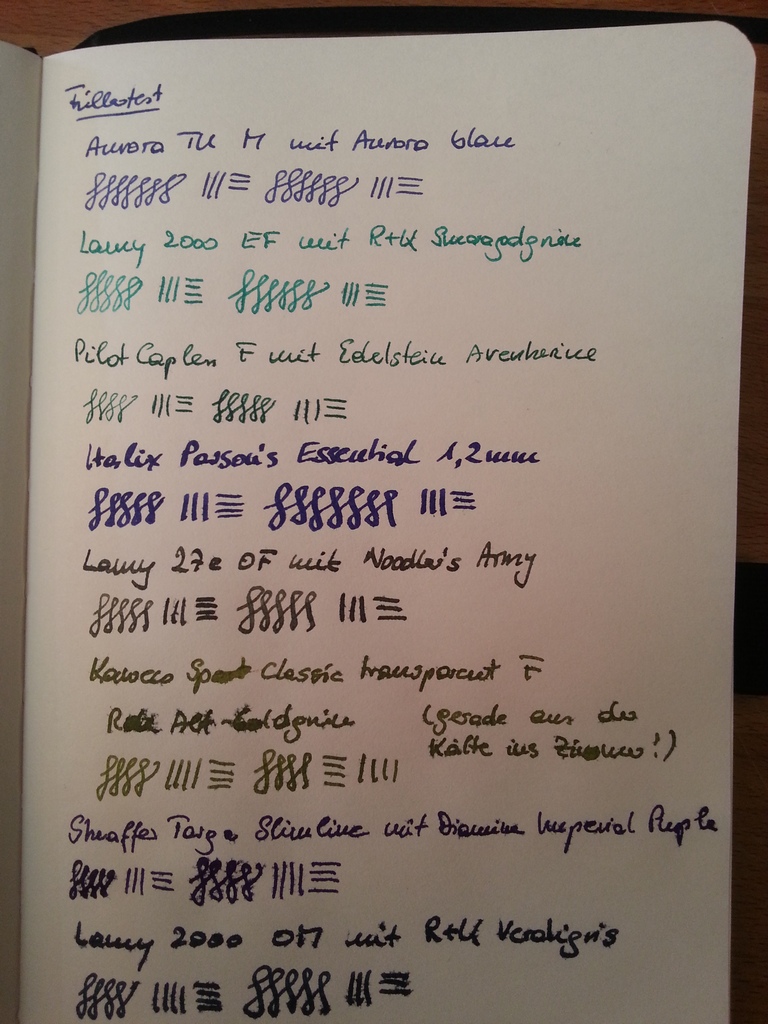 Füllertest
Aurora TU M mit Aurora blau
Lamy 2000 EF mit R+K Smaragdgrün
Pilot Capless F mit Edelstein Aventurine
Italix Parson's Essential 1,2mm
Lamy 27e OF mit Noodler's Army
Kaweco Sport Classic transparent F
R+K Alt-Goldgrün (gerade aus der
Kälte ins Zimmer!)
Sheaffer Targa Slimline mit Diamine Imperial Purple
Lamy 2000 OM mit R+K Verdigris